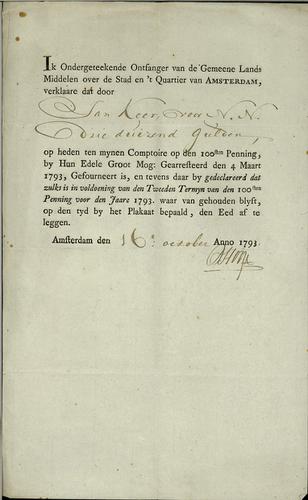 Ik Ondergeteekende Ontfanger van de Gemeene Lands
Middelen over de Stad en 't Quartier van AMSTERDAM,
verklaare dat door
Jan voor N. N.
Drie duizend Gulden,
op heden ten mynen Comptoire op den 100sten Penning,
by Hun Edele Groot Mog: Gearresteerd den 4 Maart
1793, Gefourneert is, en tevens daar by gedeclareerd dat
zulks is in voldoening van den Tweeden Termyn van den 100sten
Penning voor den Jaare 1793. waar van gehouden blyft,
op den tyd by het Plakaat bepaald, den Eed af te
leggen.
Amsterdam den 16e october Anno 1793